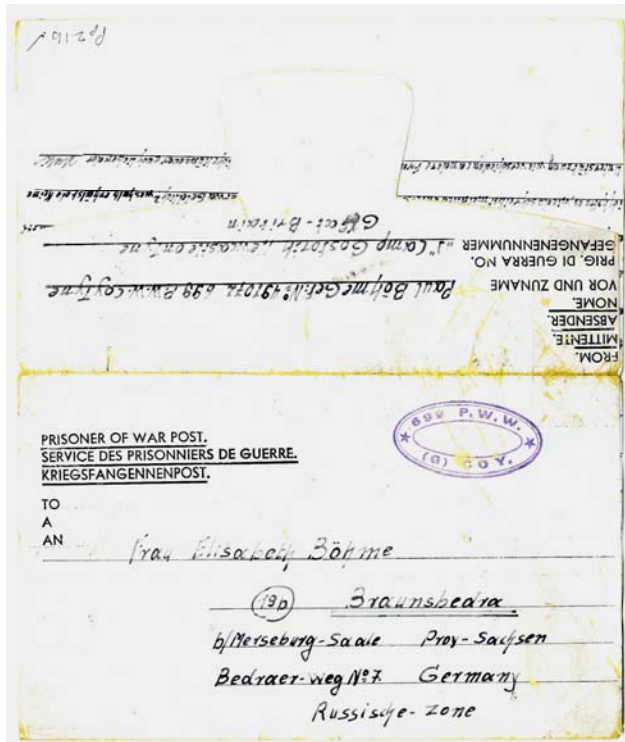 FROM.
MITTENTE.
ABSENDER.
NOME.
VOR UND ZUNAME Paul Böhme Gef. N° 491072 699 P.W.W. Coy Tyne
PRIG. DI GUERRA NO.
GEFANGENNENNUMMER "J" Camp Gosforth Newcastle on Tyne
Great-Britain
PRISONER OF WAR POST.
SERVICE DES PRISONNIERS DE GUERRE.
KRIEGSFANGENNENPOST.
699 P.W.W.
(G) COY.
TO
A
AN Frau Elisabeth Böhme
(19b) Braunsbedra
b/Merseburg-Saale Prov-Sachsen
Bedraer-weg N° 7. Germany
Russische-Zone